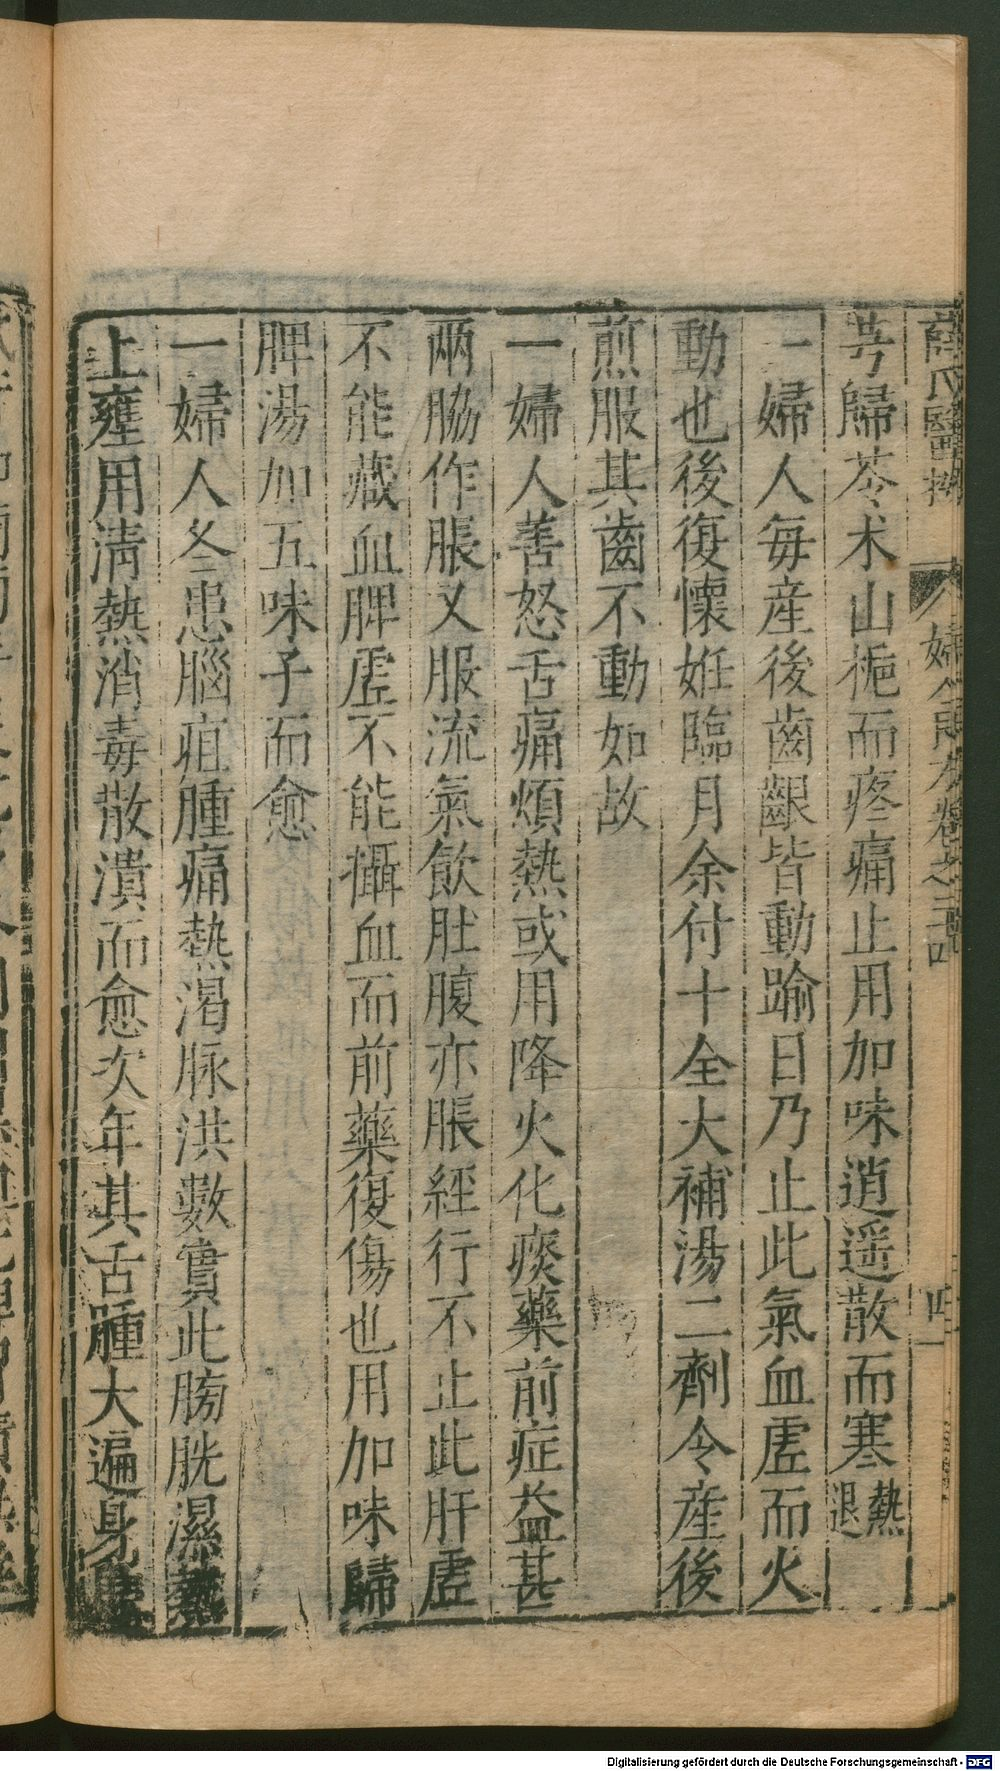 薛氏醫按
婦人良方卷之二十四
四一
芎歸苓术山梔而疼痛止用加味逍遥散而寒熱退
一婦人每産後齒齦皆動踰日乃止此氣血虗而火
動也後復懷姙臨月余付十全大補湯二劑令産後
煎服其齒不動如故
一婦人善怒舌痛煩熱或用降火化痰藥前症益甚
兩脇作脹又服流氣飲肚腹亦脹經行不止此肝虗
不能藏血脾虗不能攝血而前藥復傷也用加味歸
脾湯加五味子而愈
一婦人冬患腦疽腫痛熱渴脉洪數實此膀胱濕熱
上壅用清熱消毒散潰而愈次年其舌腫大遍身
Digitalisierung gefördert durch die Deutsche Forschungsgemeinschaft - DFG